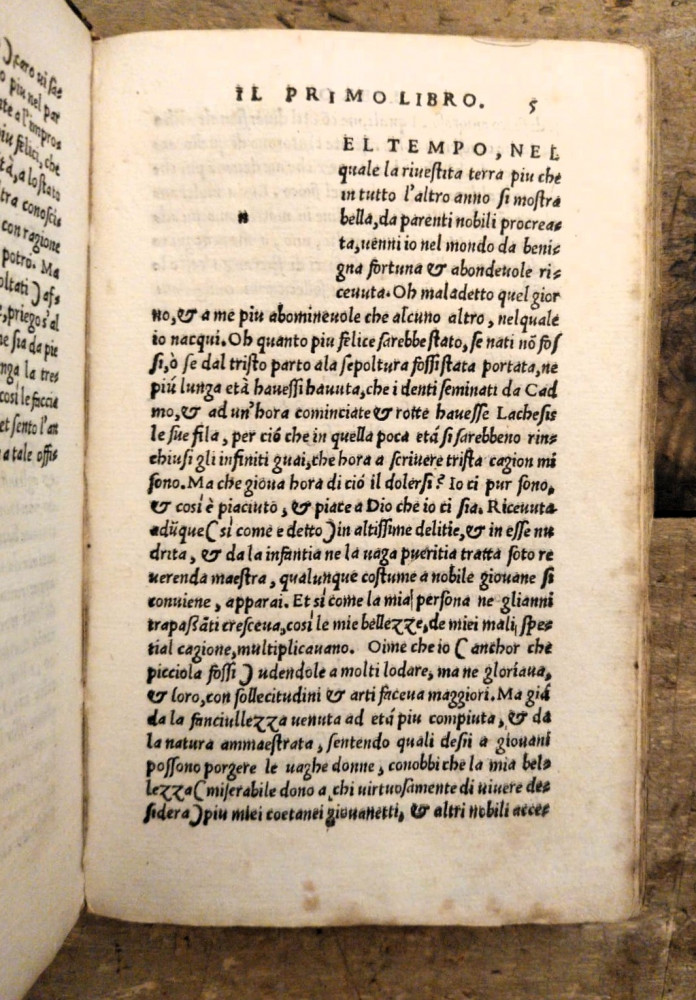 ) fero ui fac
o piu nel par
te a l'impros
iu felici, che
tà, a lo stato
tra conoscis
con ragione
potrò. Ma
oltati ) afs
e, priego s'al
ne sia da pie
nga la tres
così le faccia
et sento l'an
a tale offis
IL PRIMO LIBRO. 5
EL TEMPO, NEL
quale la riuestita terra piu che
in tutto l'altro anno si mostra
n bella, da parenti nobili procreas
ta, uenni io nel mondo da benis
gna fortuna & abondeuole ris
ceuuta. Oh maladetto quel gior
no, & a me piu abomineuole che alcuno altro, nel quale
io nacqui. Oh quanto piu felice sarebbe stato, se nati nõ fos
si, ò se dal tristo parto a la sepoltura fossi stata portata, ne
piú lunga età hauessi hauuta, che i denti seminati da Cad
mo, & ad un'hora cominciate & rotte hauesse Lachesis
le sue fila, per ció che in quella poca etá si sarebbeno rins
chiusi gli infiniti guai, che hora a scriuere trista cagion mi
sono. Ma che gioua hora di ció il dolersi? Io ci pur sono,
& così è piaciuto, & piace a Dio che io ci sia. Riceuuta
adũque ( sì come e detto ) in altissime delitie, & in esse nu
drita, & da la infantia ne la uaga pueritia tratta soto re
uerenda maestra, qualunque costume a nobile giouane si
conuiene, apparai. Et sì come la mia persona ne gli anni
trapaßãti cresceua, così le mie bellezze, de miei mali spes
tial cagione, multiplicauano. Oime che io ( anchor che
picciola fossi ) udendole a molti lodare, ma ne gloriaua,
& loro, con sollecitudini & arti faceua maggiori. Ma giá
da la fanciullezza uenuta ad etá piu compiuta, & da
la natura ammaestrata, sentendo quali desii a giouani
possono porgere le uaghe donne, conobbi che la mia bels
lezza ( miserabile dono a chi uirtuosamente di uiuere des
sidera ) piu miei coetanei giouanetti, & altri nobili acces